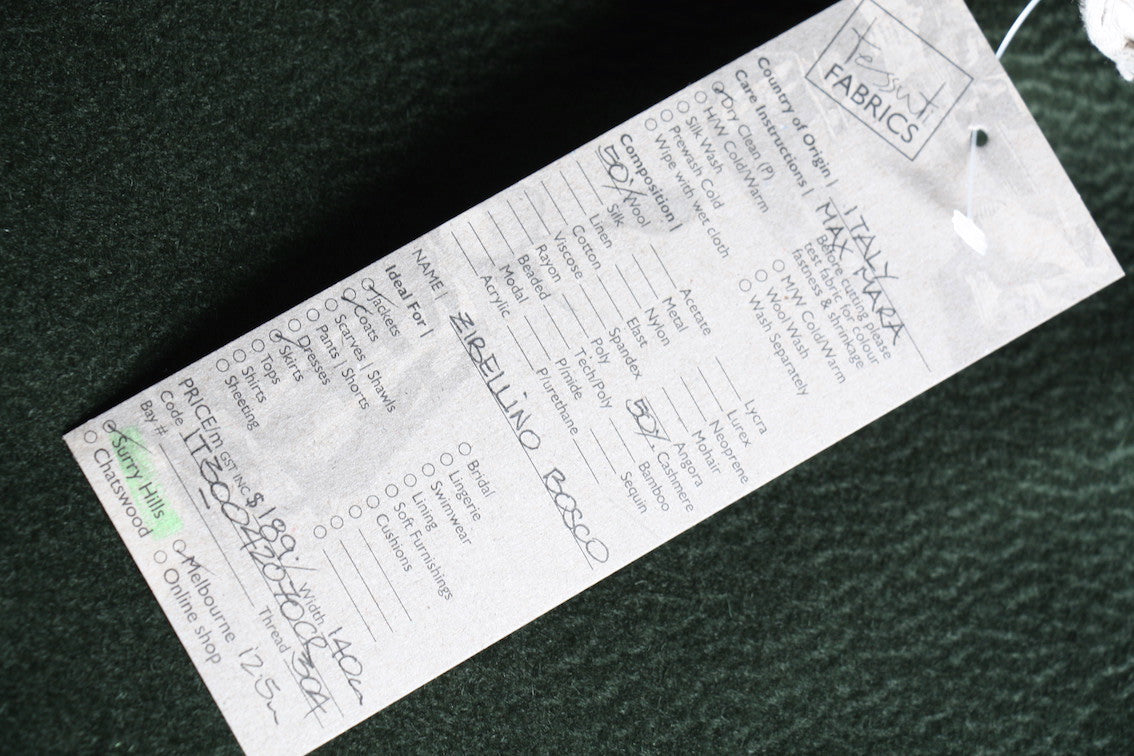 tessuti
FABRICS
Country of Origin | ITALY
MAX MARA
Care Instructions | Before cutting please
test fabric for colour
fastness & shrinkage
Dry Clean (P)
H/W Cold/Warm
Silk Wash
Prewash Cold
Wipe with wet cloth
M/W Cold/Warm
Wool Wash
Wash Separately
Composition |
50% Wool
Silk
Linen
Cotton
Viscose
Rayon
Beaded
Modal
Acrylic
Acetate
Metal
Nylon
Elast
Spandex
Poly
Tech/Poly
P/mide
P/urethane
Lycra
Lurex
Neoprene
Mohair
Angora
50% Cashmere
Bamboo
Sequin
NAME | ZIBELLINO BOSCO
Ideal For |
Jackets
Coats
Scarves | Shawls
Pants | Shorts
Dresses
Skirts
Tops
Shirts
Sheeting
Bridal
Lingerie
Swimwear
Lining
Soft Furnishings
Cushions
PRICE/m GST INC. $ 189 Width 140cm
Code
Bay # Thread
Surry Hills
Chatswood
Melbourne 12.5m
Online shop